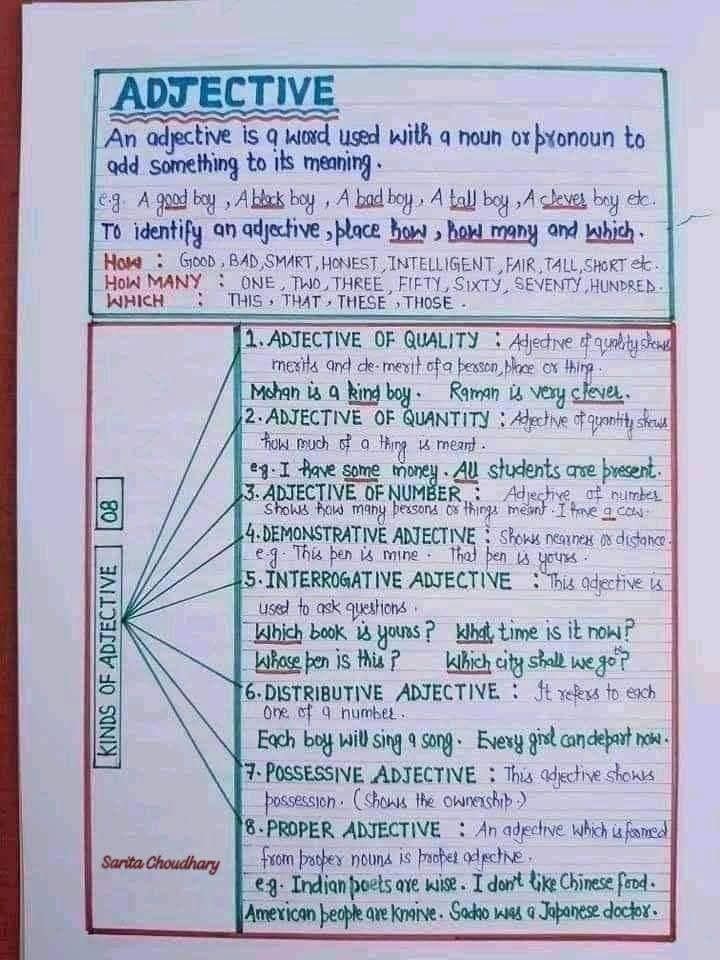 ADJECTIVE
An adjective is a word used with a noun or pronoun to
add something to its meaning.
e.g. A good boy, A black boy, A bad boy, A tall boy, A clever boy etc.
To identify an adjective, place how, how many and which.
HOW : GOOD, BAD, SMART, HONEST, INTELLIGENT, FAIR, TALL, SHORT etc.
HOW MANY : ONE, TWO, THREE, FIFTY, SIXTY, SEVENTY, HUNDRED.
WHICH : THIS, THAT, THESE, THOSE.
KINDS OF ADJECTIVE 08
1. ADJECTIVE OF QUALITY : Adjective of quality shows
merits and de-merit of a person, place or thing.
Mohan is a king boy. Raman is very clever.
2. ADJECTIVE OF QUANTITY : Adjective of quantity shows
how much of a thing is meant.
e.g. I have some money. All students are present.
3. ADJECTIVE OF NUMBER : Adjective of number
shows how many persons or things meant. I have a cow.
4. DEMONSTRATIVE ADJECTIVE : Shows nearness or distance.
e.g. This pen is mine. That pen is yours.
5. INTERROGATIVE ADJECTIVE : This adjective is
used to ask questions.
Which book is yours? What time is it now?
Whose pen is this? Which city shall we go to?
6. DISTRIBUTIVE ADJECTIVE : It refers to each
one of a number.
Each boy will sing a song. Every girl can depart now.
7. POSSESSIVE ADJECTIVE : This adjective shows
possession. (Shows the ownership.)
8. PROPER ADJECTIVE : An adjective which is formed
from proper nouns is proper adjective.
e.g. Indian poets are wise. I don't like Chinese food.
American people are knaive. Sadao was a Japanese doctor.
Sarita Choudhary